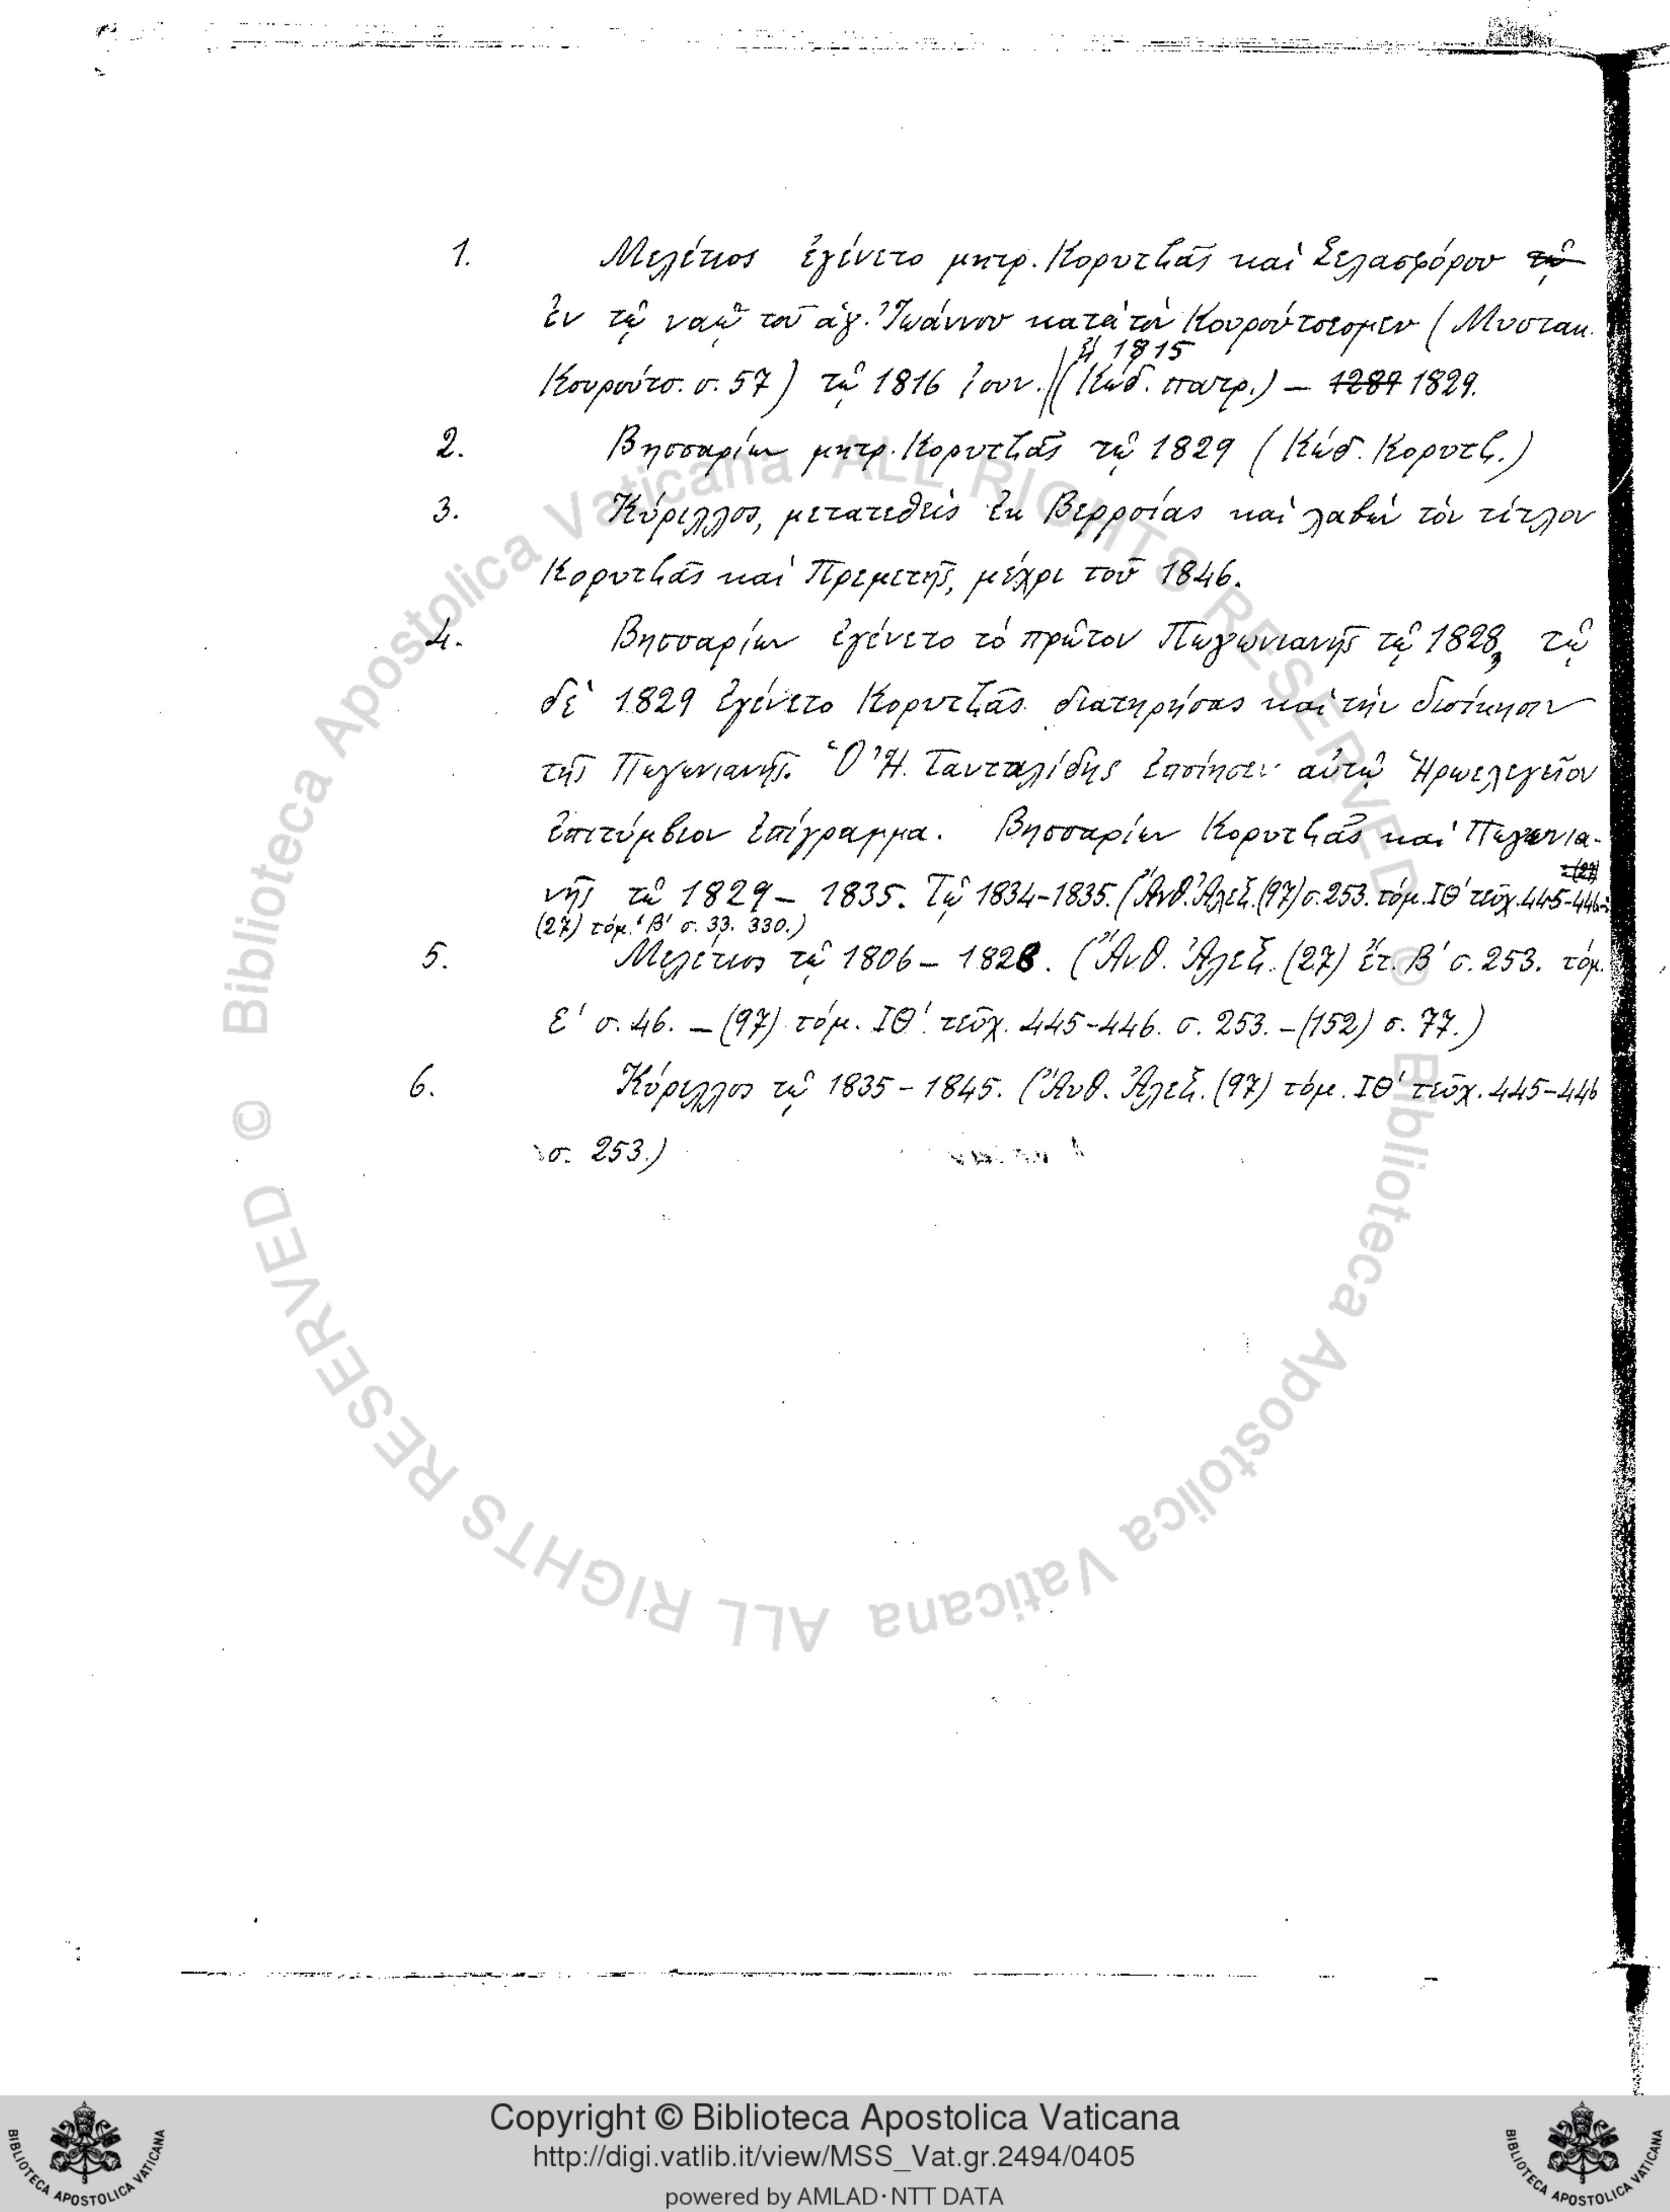 1. Μελέτιος ἐγένετο μητρ. Κορυτζᾶς καὶ Σελασφόρου τῷ
ἐν τῷ ναῷ τοῦ ἁγ. Ἰωάννου κατὰ τὸ Κουρούτσεσμεν (Μυστακ.
ἢ 1815
Κουρούτσ. σ. 57) τῷ 1816 Ἰουν. (Κώδ. πατρ.) – 1829.
2. Βησσαρίων μητρ. Κορυτζᾶς τῷ 1829 (Κώδ. Κορυτζ.)
3. Κύριλλος, μετατεθεὶς ἐκ Βερροίας καὶ λαβὼν τὸν τίτλον
Κορυτζᾶς καὶ Πρεμετῆς, μέχρι τοῦ 1846.
4. Βησσαρίων ἐγένετο τὸ πρῶτον Πωγωνιανῆς τῷ 1828, τῷ
δὲ 1829 ἐγένετο Κορυτζᾶς διατηρήσας καὶ τὴν διοίκησιν
τῆς Πωγωνιανῆς. Ὁ Ἠ. Τανταλίδης ἐποίησεν αὐτῷ Ἡρωελεγεῖον
ἐπιτύμβιον ἐπίγραμμα. Βησσαρίων Κορυτζᾶς καὶ Πωγωνια-
νῆς τῷ 1829 – 1835. Τῷ 1834–1835. (Ἀνθ. Ἀλεξ. (97) σ. 253. τόμ. ΙΘ' τεῦχ. 445–446
(27) τόμ. Β' σ. 33. 330.)
5. Μελέτιος τῷ 1806 – 1828. (Ἀνθ. Ἀλεξ. (27) ἔτ. Β' σ. 253. τόμ.
Ε' σ. 46. – (97) τόμ. ΙΘ' τεῦχ. 445–446. σ. 253. – (152) σ. 77.)
6. Κύριλλος τῷ 1835 – 1845. (Ἀνθ. Ἀλεξ. (97) τόμ. ΙΘ' τεῦχ. 445–446
σ. 253.)
© Biblioteca Apostolica Vaticana ALL RIGHTS RESERVED © Biblioteca Apostolica Vaticana ALL RIGHTS RESERVED
BIBLIOTECA APOSTOLICA VATICANA
Copyright © Biblioteca Apostolica Vaticana
http://digi.vatlib.it/view/MSS_Vat.gr.2494/0405
powered by AMLAD·NTT DATA
BIBLIOTECA APOSTOLICA VATICANA